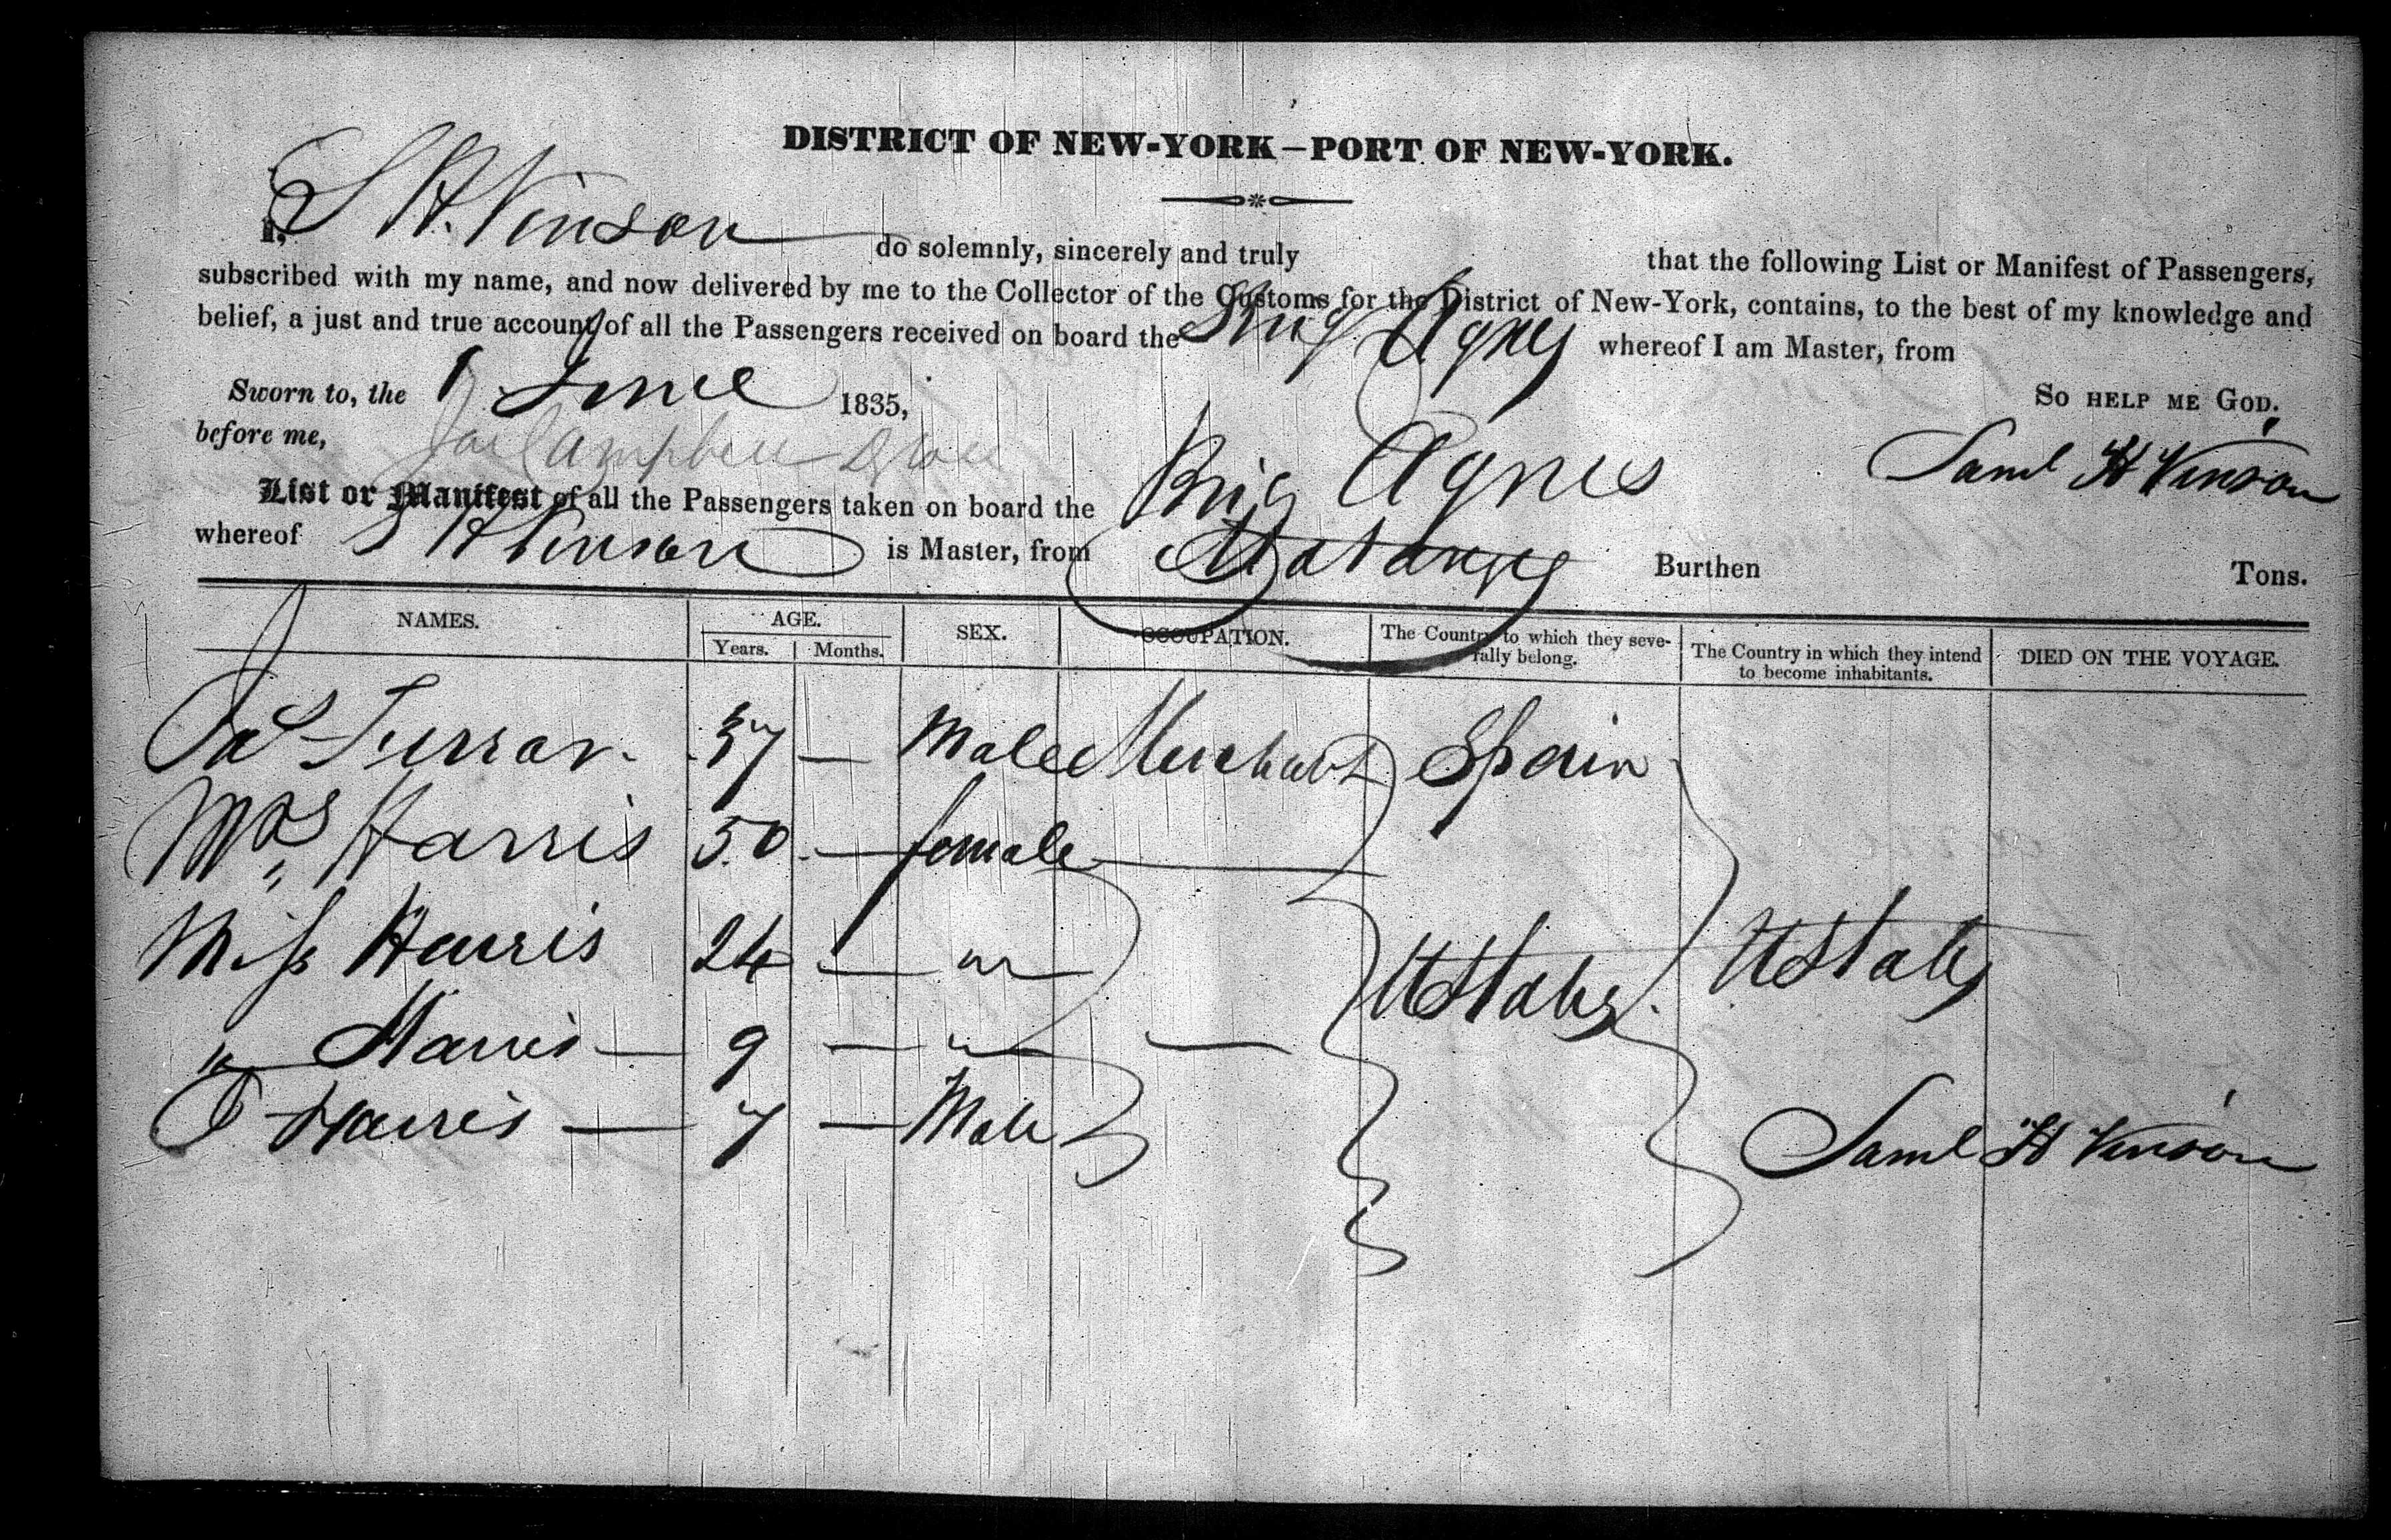 DISTRICT OF NEW-YORK—PORT OF NEW-YORK.
I, S H. Vinson do solemnly, sincerely and truly that the following List or Manifest of Passengers,
subscribed with my name, and now delivered by me to the Collector of the Customs for the District of New-York, contains, to the best of my knowledge and
belief, a just and true account of all the Passengers received on board the Brig Agnes whereof I am Master, from
Sworn to, the 1 June 1835, So HELP ME GOD.
before me, Campbell Saml H Vinson
List or Manifest of all the Passengers taken on board the Brig Agnes
whereof S H Vinson is Master, from Matanzas Burthen Tons.
NAMES. AGE. Years. Months. SEX. OCCUPATION. The Country to which they severally belong. The Country in which they intend to become inhabitants. DIED ON THE VOYAGE.
37 — Male Merchant Spain
Mrs Harris 50 — female —
Miss Harris 24 — " U States U States
" Harris — 9 — " —
Harris — 7 — Male
Saml H Vinson